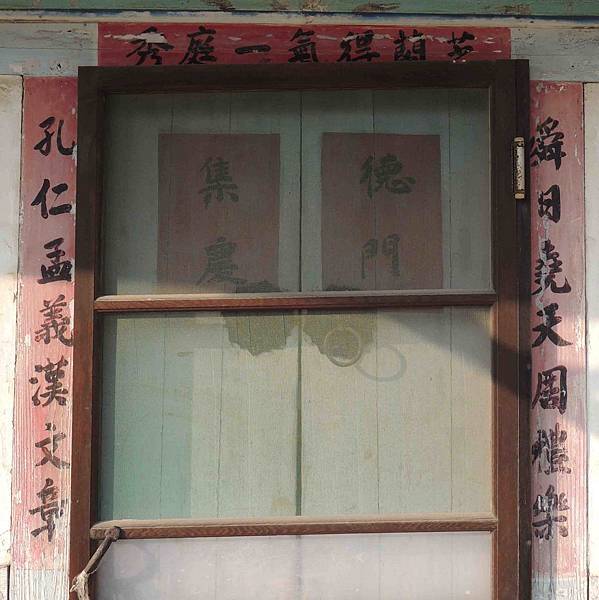 芝蘭得氣一庭秀
舜日堯天周禮樂
德門
集慶
孔仁孟義漢文章